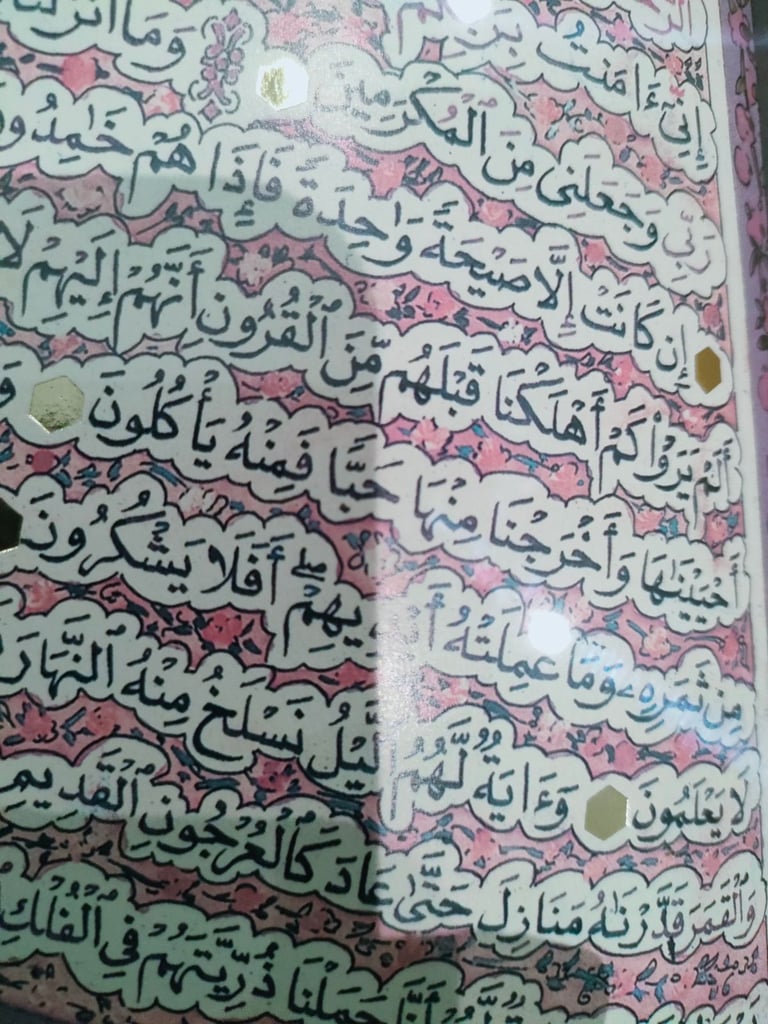 إِنِّىٓ ءَامَنتُ بِرَبِّكُمْ
رَبِّى وَجَعَلَنِى مِنَ ٱلْمُكْرَمِينَ وَمَآ أَنزَلْنَا
إِن كَانَتْ إِلَّا صَيْحَةً وَٰحِدَةً فَإِذَا هُمْ خَٰمِدُونَ
أَلَمْ يَرَوْا۟ كَمْ أَهْلَكْنَا قَبْلَهُم مِّنَ ٱلْقُرُونِ أَنَّهُمْ إِلَيْهِمْ لَا
أَحْيَيْنَٰهَا وَأَخْرَجْنَا مِنْهَا حَبًّا فَمِنْهُ يَأْكُلُونَ
مِن ثَمَرِهِۦ وَمَا عَمِلَتْهُ أَيْدِيهِمْ ۖ أَفَلَا يَشْكُرُونَ
لَا يَعْلَمُونَ وَءَايَةٌ لَّهُمُ ٱلَّيْلُ نَسْلَخُ مِنْهُ ٱلنَّهَارَ
وَٱلْقَمَرَ قَدَّرْنَٰهُ مَنَازِلَ حَتَّىٰ عَادَ كَٱلْعُرْجُونِ ٱلْقَدِيمِ
حَمَلْنَا ذُرِّيَّتَهُمْ فِى ٱلْفُلْكِ